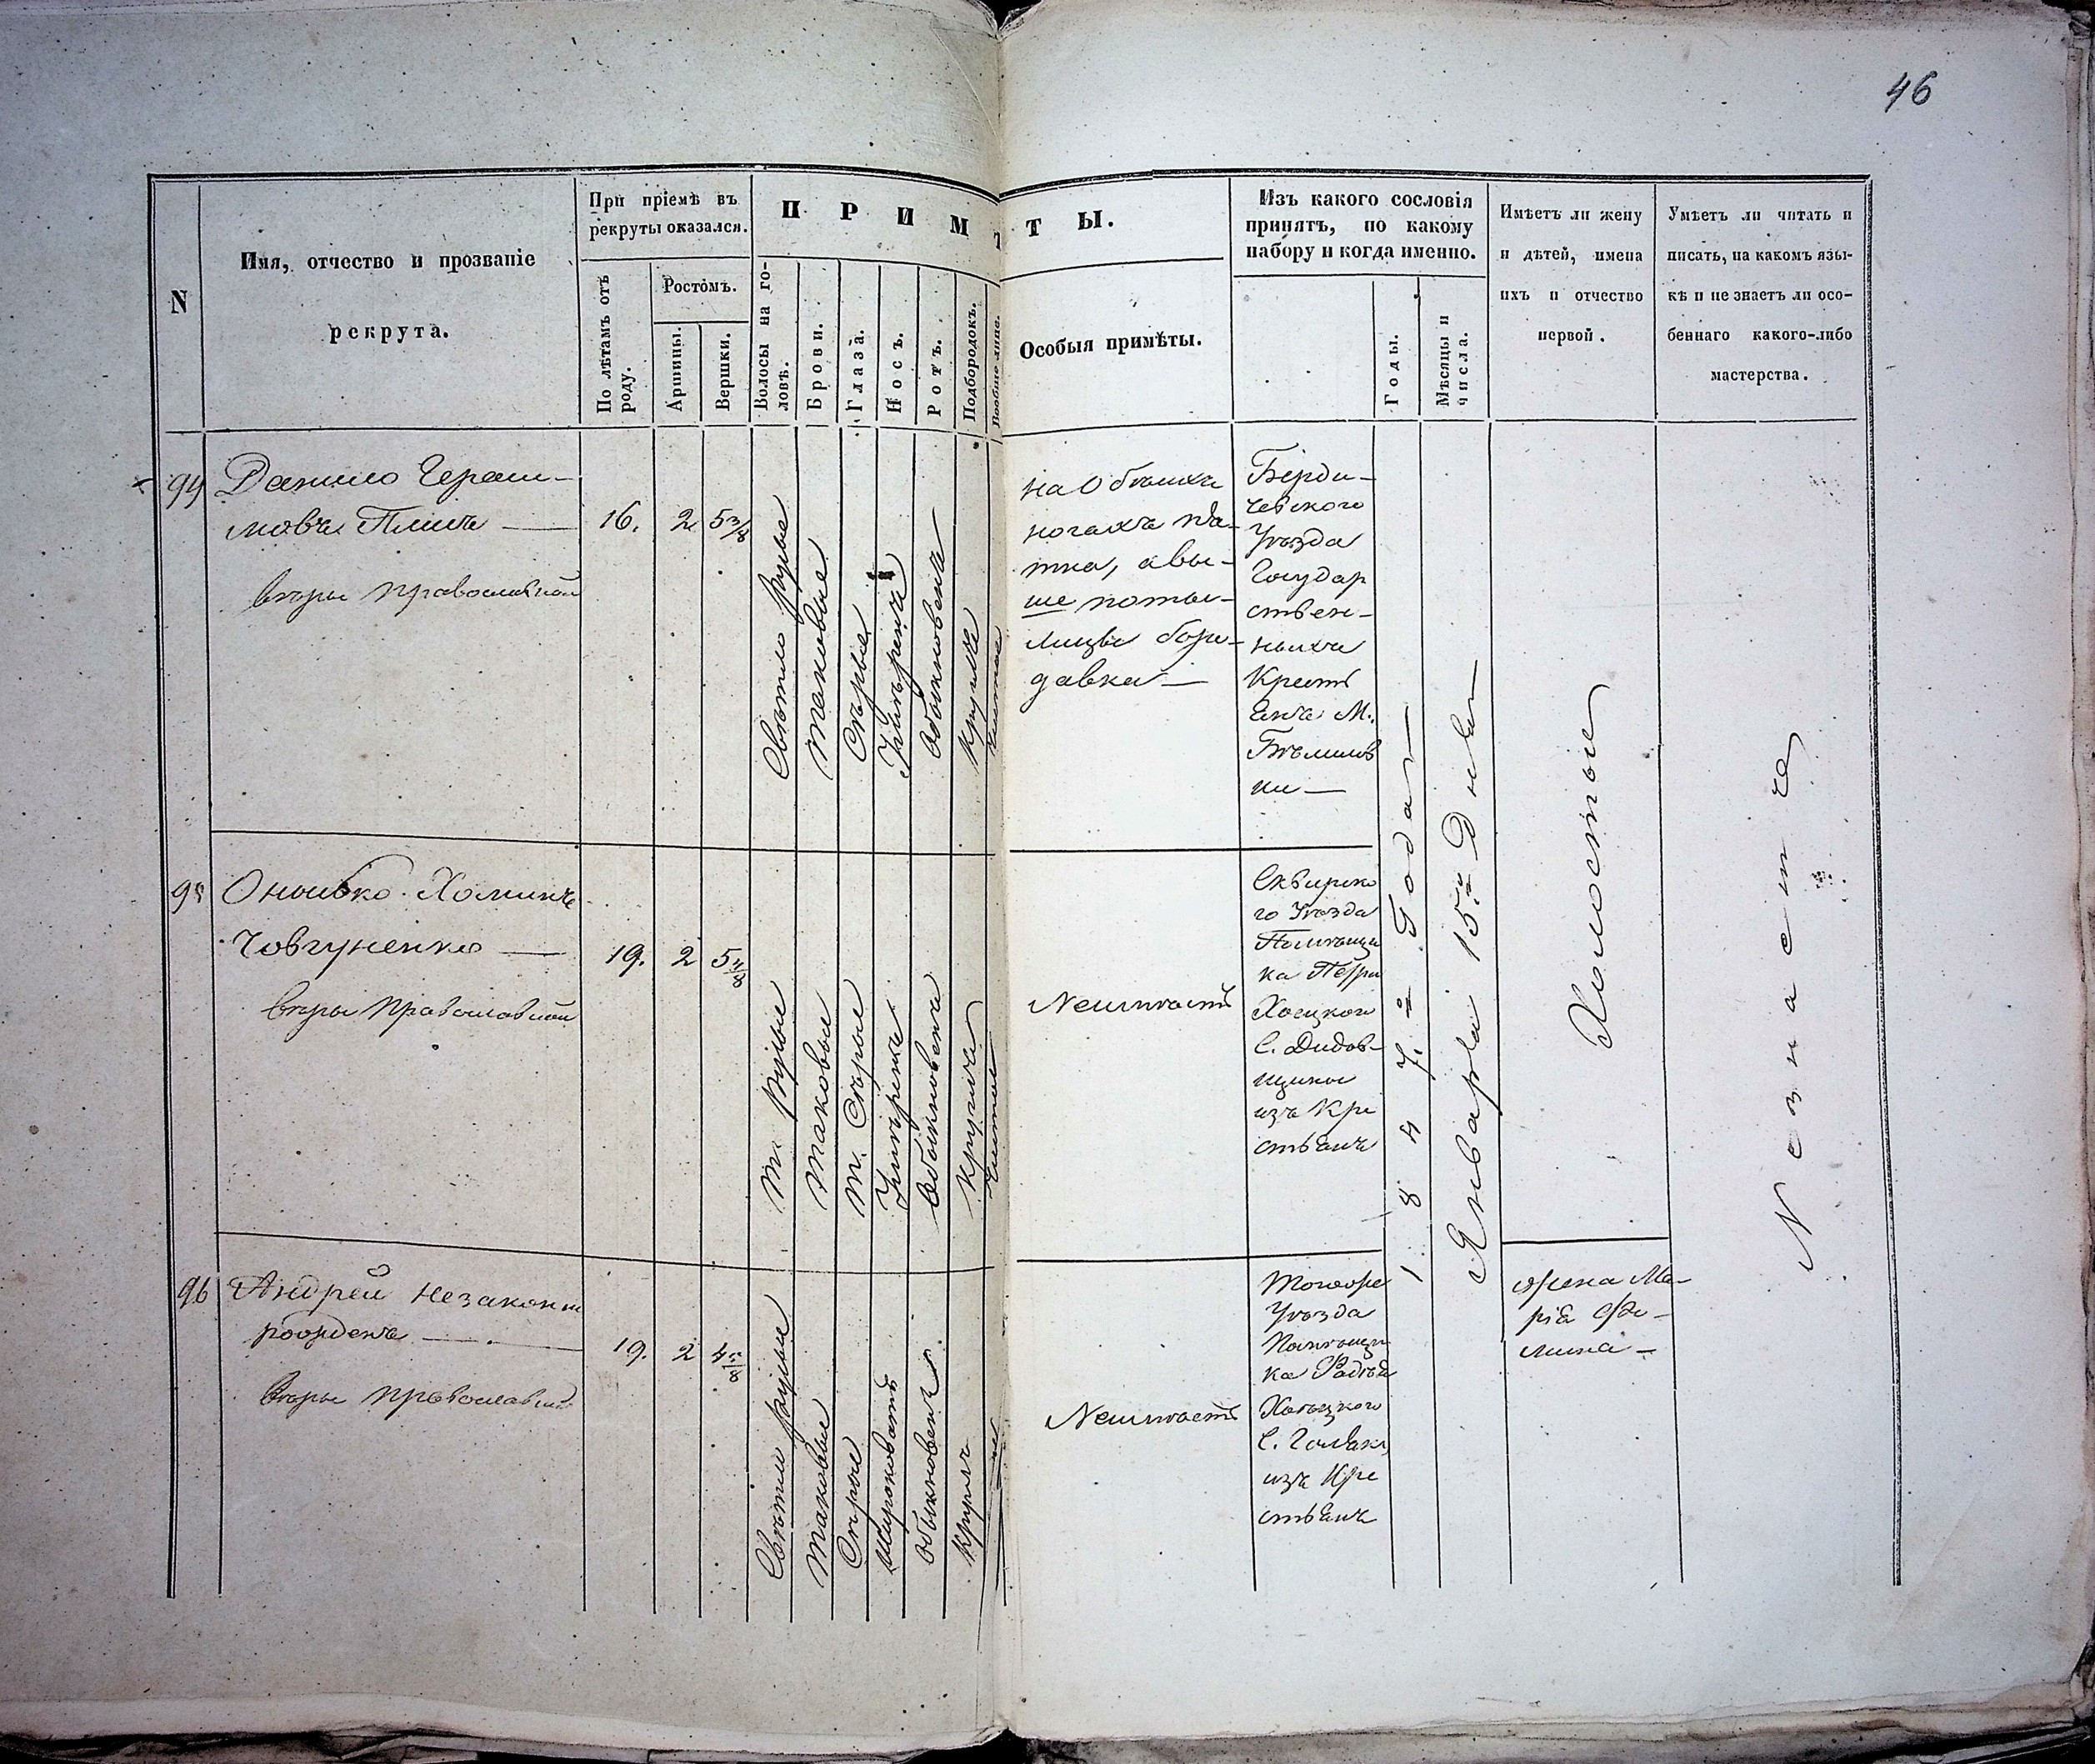 46
N
Имя, отчество и прозваніе
рекрута.
При пріемѣ въ
рекруты оказался.
По лѣтамъ отъ
роду.
Ростомъ.
Аршины.
Вершки.
П Р И М Ѣ Т Ы.
Волосы на го-
ловѣ.
Брови.
Глаза.
Носъ.
Ротъ.
Подбородокъ.
Вообще лице.
Особыя примѣты.
Изъ какого сословія
принятъ, по какому
набору и когда именно.
Годы.
Мѣсяцы и
числа.
Имѣетъ ли жену
и дѣтей, имена
ихъ и отчество
первой.
Умѣетъ ли читать и
писать, на какомъ язы-
кѣ и не знаетъ ли осо-
беннаго какого-либо
мастерства.
94
Данило Гераси-
мовъ
вѣры православной
16.
2
5 3/8
Свѣтло русые
таковые
Сѣрые
Обыкновенъ
Круглъ
Чистое
на обѣихъ
ногахъ
а вы-
ше
боро-
давка
Берди-
чевского
Уѣзда
Государ
ствен-
ныхъ
Крестъ
янъ М.
Бѣлилов
ки
1847го Года
Января 15го Дня
Холостые
Не знаетъ
95
Хоминъ
Човгуненко
вѣры православной
19.
2
5 4/8
т. русые
таковые
т. Сѣрые
Обыкновенъ
Круглъ
Чистое
Неимѣетъ
Сквирско
го Уѣзда
Помѣщи
ка
Хоецкого
С. Дидов-
щины
изъ Кре
стьянъ
96
Андрей незаконно
рожденъ
вѣры православной
19.
2
4 5/8
Свѣтло русые
таковые
Сѣрые
широковатъ
обыкновенъ
Круглъ
Неимѣетъ
Тогоже
Уѣзда
Помѣщи
ка
изъ Кре
стьянъ
жена Ма-
рія